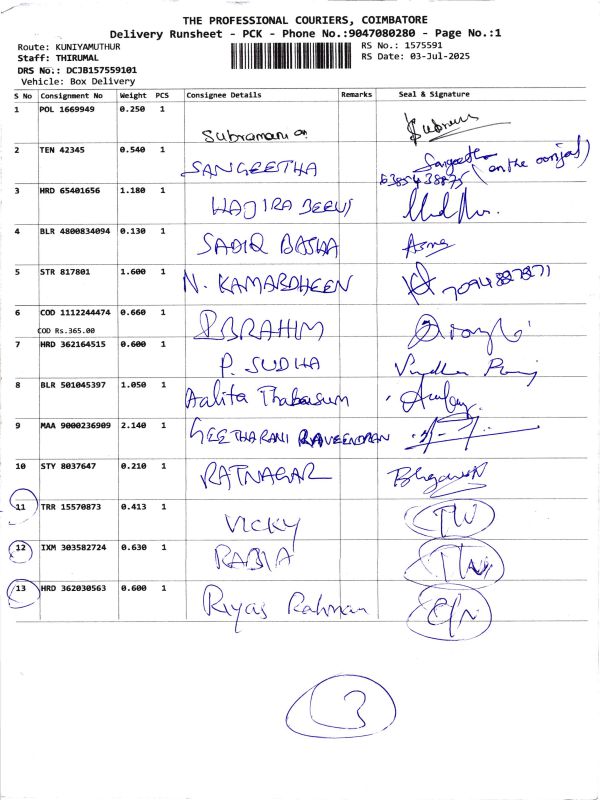 THE PROFESSIONAL COURIERS, COIMBATORE
Delivery Runsheet - PCK - Phone No.:9047080280 - Page No.:1
Route: KUNIYAMUTHUR RS No.: 1575591
Staff: THIRUMAL RS Date: 03-Jul-2025
DRS No.: DCJB157559101
Vehicle: Box Delivery
S No Consignment No Weight PCS Consignee Details Remarks Seal & Signature
1 POL 1669949 0.250 1 Subramani
2 TEN 42345 0.540 1 SANGEETHA Sangeetha
3 HRD 65401656 1.180 1 HAJIRA BEEVI
4 BLR 4800834094 0.130 1 SADIQ BASHA Asma
5 STR 817801 1.600 1 N. KAMARDHEEN
6 COD 1112244474 0.660 1 IBRAHIM
COD Rs.365.00
7 HRD 362164515 0.600 1 P. SUDHA
8 BLR 501045397 1.050 1 Aalita Thabasum
9 MAA 9000236909 2.140 1 GEETHARANI RAVEENDRAN
10 STY 8037647 0.210 1 RATNAGAR
11 TRR 15570873 0.413 1 VICKY
12 IXM 303582724 0.630 1 RABIA
13 HRD 362030563 0.600 1 Riyas Rahman
3